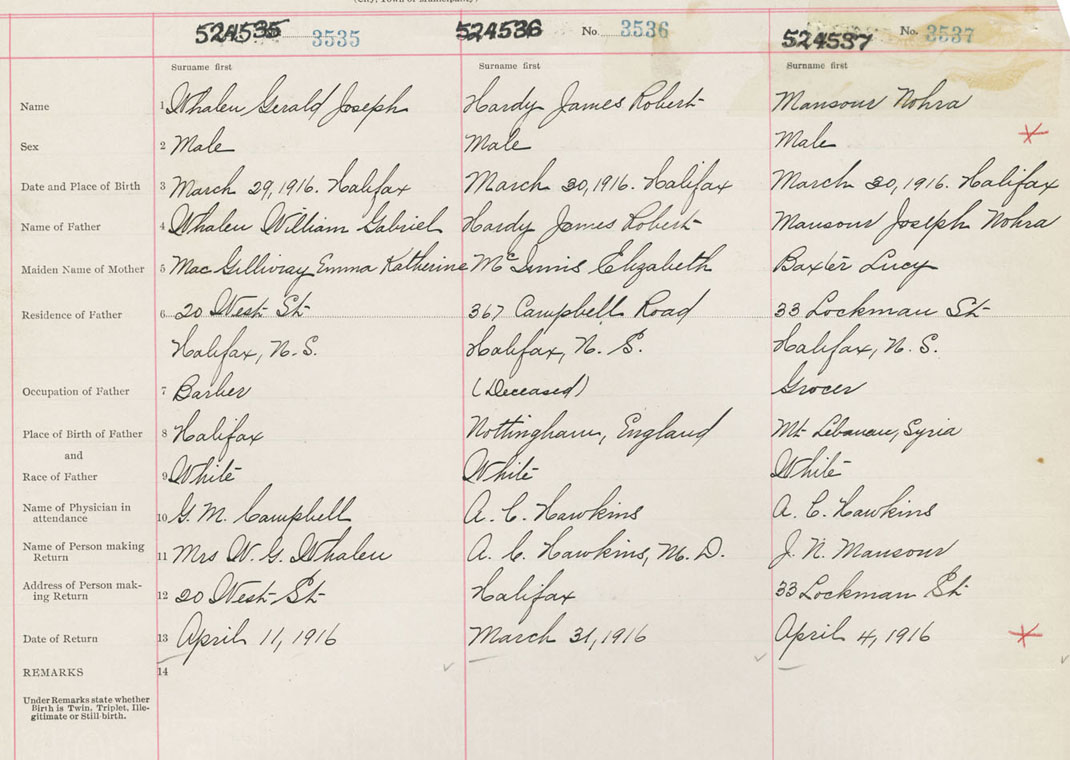 (City, Town or Municipality)
524535 3535 524536 No. 3536 524537 No. 3537
Surname first Surname first Surname first
Name 1 Whalen Gerald Joseph Hardy James Robert Mansour Nohra
Sex 2 Male Male Male
Date and Place of Birth 3 March 29, 1916. Halifax March 30, 1916. Halifax March 30, 1916. Halifax
Name of Father 4 Whalen William Gabriel Hardy James Robert Mansour Joseph Nohra
Maiden Name of Mother 5 Mac Gillivray Emma Katherine McInnis Elizabeth Baxter Lucy
Residence of Father 6 20 West St 367 Campbell Road 33 Lockman St
Halifax, N.S. Halifax, N.S. Halifax, N.S.
Occupation of Father 7 Barber (Deceased) Grocer
Place of Birth of Father 8 Halifax Nottingham, England Mt Lebanon, Syria
and
Race of Father 9 White White White
Name of Physician in
attendance 10 G. M. Campbell A. C. Hawkins A. C. Hawkins
Name of Person making
Return 11 Mrs W. G. Whalen A. C. Hawkins, M.D. J. N. Mansour
Address of Person mak-
ing Return 12 20 West St Halifax 33 Lockman St
Date of Return 13 April 11, 1916 March 31, 1916 April 4, 1916
REMARKS 14
Under Remarks state whether
Birth is Twin, Triplet, Ille-
gitimate or Still-birth.